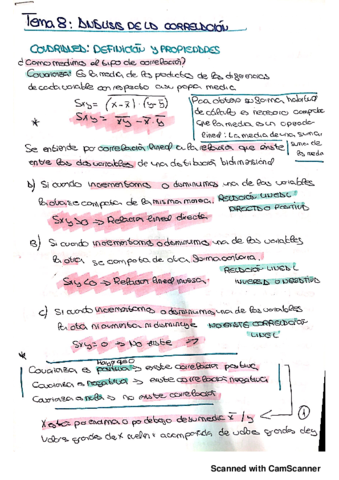 Tema 8: ANÁLISIS DE LA CORRELACIÓN
COVARIANZA: DEFINICIÓN Y PROPIEDADES
¿Como medimos el tipo de correlación?
Covarianza: Es la media de los productos de las diferencias
de cada variable con respecto a su propia media.
Sxy = (x-x̄)·(y-ȳ)
* Sxy = xy - x̄·ȳ
Para obtener su forma
de cálculo es necesario
que la media es un operador
lineal: La media de una suma
suma de
Se entiende por correlación lineal a la relación que existe
entre las dos variables de una distribución bidimensional
Si cuando incrementamos o disminuimos una de las variables
la otra se comporta de la misma manera. RELACIÓN LINEAL
DIRECTA O POSITIVA
Sxy>0 → Relación lineal directa
B) Si cuando incrementamos o disminuimos una de las variables
la otra se comporta de otra forma contraria.
RELACIÓN LINEAL
INVERSA O NEGATIVA
Sxy<0 → Relación lineal inversa
c) Si cuando incrementamos o disminuimos una de las variables
la otra ni aumenta ni disminuye NO EXISTE CORRELACIÓN
LINEAL
Sxy=0 → No existe
Covarianza es positiva → existe correlación positiva
Covarianza es negativa → existe correlación negativa
Covarianza es nula → no existe correlación
X está por encima o por debajo de su media x̄ / y
①
Valores grandes de x vienen acompañados de valores grandes de y
Scanned with CamScanner